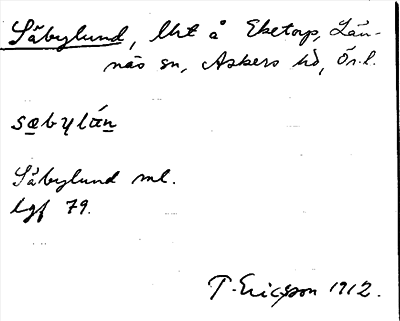 Såbylund, lht å Eketorp, Län-
näs sn, Askers hd, Ör. l.
sæbylán
Såbylund ml.
lgf 79.
T. Ericsson 1912.